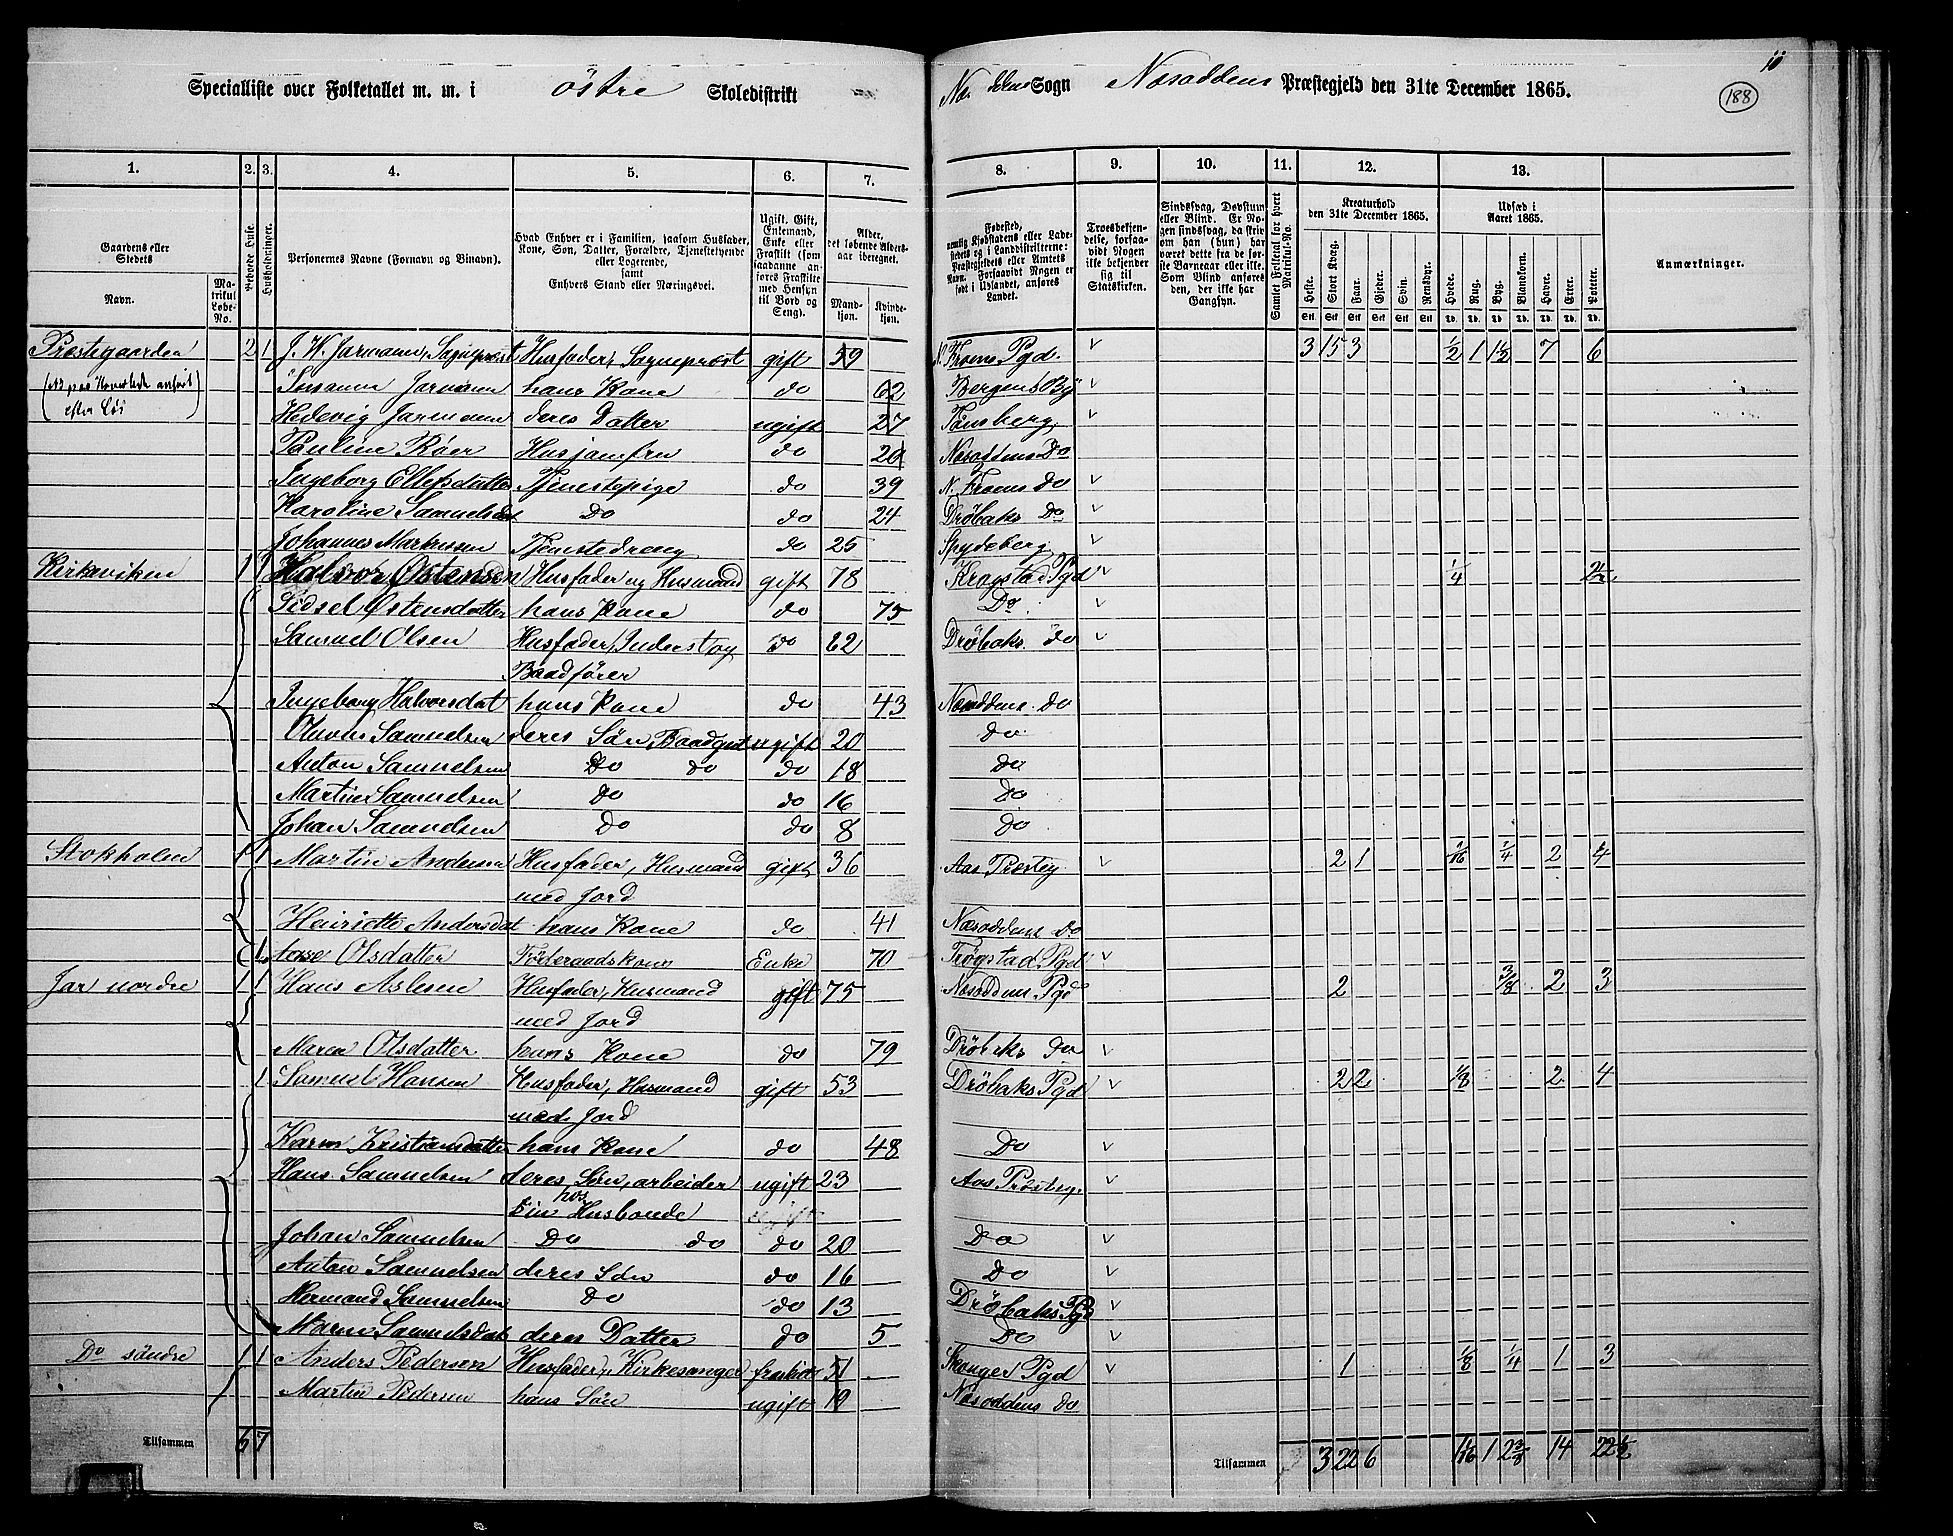 Specialliste over Folketallet m. m. i östre Skoledistrikt
Sogn Næsoddens Præstegjeld den 31te December 1865.
188
1. 2. 3. 4. 5. 6. 7. 8. 9. 10. 11. 12. 13.
Gaardens eller Stedets
Navn.
Matrikul Løbe-No.
Beboede Huse.
Husholdninger.
Personernes Navne (Fornavn og Binavn).
Hvad Enhver er i Familien, saasom Husfader, Kone, Søn, Datter, Forældre, Tjenestetyende eller Logerende, samt Enhvers Stand eller Næringsvei.
Ugift, Gift, Enkemand, Enke eller Fraskilt (som saadanne anføres Fraskilte med Hensyn til Bord og Seng).
Alder, det løbende Alders-aar iberegnet.
Mand-kjøn. Kvinde-kjøn.
Fødested, nemlig Kjøbstadens eller Ladestedets og i Landdistrikterne: Præstegjeldets eller Amtets Navn. Forsaavidt Nogen er født i Udlandet, anføres Landet.
Troesbekjendelse, forsaavidt Nogen ikke bekjender sig til Statskirken.
Sindssvag, Døvstum eller Blind. Er Nogen sindssvag, da skrives om han (hun) har været det fra de første Barneaar eller ikke. Som Blind anføres den, der ikke har Gangsyn.
Samlet Folketal for hvert Matrikul-No.
Kreaturhold den 31te December 1865.
Heste. Stort Kvæg. Faar. Gjeder. Svin. Rensdyr.
Udsæd i Aaret 1865.
Hvede. Rug. Byg. Blandkorn. Havre. Erter. Poteter.
Anmærkninger.
Præstegaarden 2 1 J. W. Jarmann, Sogneprest Husfader, Sogneprest gift 59 N. Froens Pgd. 3 15 3 1/2 1 1 1/2 7 6
Susanne Jarmann hans Kone do 62 Bergens By
Hedevig Jarmann deres Datter ugift 27 Tönsberg
Pauline Röer Husjomfru do 20 Næsoddens Do
Ingeborg Ellefsdatter Tjenestepige do 39 N. Froens do
Karoline Samuelsdat Do do 24 Dröbaks Do
Johannes Markussen Tjenestedreng do 25 Spydeberg
Kirkeviken 1 1 Halvor Östensen Husfader og Husmand gift 78 Krogstad Pgd 1/4
Sidsel Östensdatter hans Kone do 75 Do
Samuel Olsen Husfader, Inderst og do 62 Dröbaks do
Baadförer
Ingeborg Halvorsdat hans Kone do 43 Næsoddens do
Samuelsen deres Sön, ugift 20 do
Anton Samuelsen Do do do 18 do
Martin Samuelsen Do do 16 do
Johan Samuelsen Do do 8 do
Stokholm 1 1 Martin Andersen Husfader, Husmand gift 36 Aas Præsteg 2 1 1/16 1/4 2 4
med Jord
Henriette Andersdat hans Kone do 41 Næsoddens do
1 Olsdatter Föderaadskone Enke 70 Trøgstad Pgd
Jar nordre 1 1 Hans Aslesen Husfader, Husmand gift 75 Næsoddens Pgd 2 3/8 2 3
med Jord
Maren Olsdatter hans Kone do 79 Dröbaks do
1 Samuel Hansen Husfader, Husmand gift 53 Dröbaks Pgd 2 2 1/8 2 4
med Jord
Karen Kristiansdatter hans Kone do 48 Do
Hans Samuelsen deres Sön, arbeider ugift 23 Aas Præsteg.
hos sin Husbonde
Johan Samuelsen Do do do 20 Do
Anton Samuelsen deres Sön do 16 Do
Hermand Samuelsen Do do 13 Dröbaks Pgd
Maren Samuelsdat deres Datter do 5 Do
Do söndre 1 1 Anders Pedersen Husfader, Kirkesanger fraskilt 51 Skonger Pgd 1 1/8 1/4 1 3
Martin Pedersen hans Sön ugift 19 Næsoddens do
Tilsammen 6 7
Tilsammen 3 22 6 1 1/16 1 2 3/8 14 22 1/2